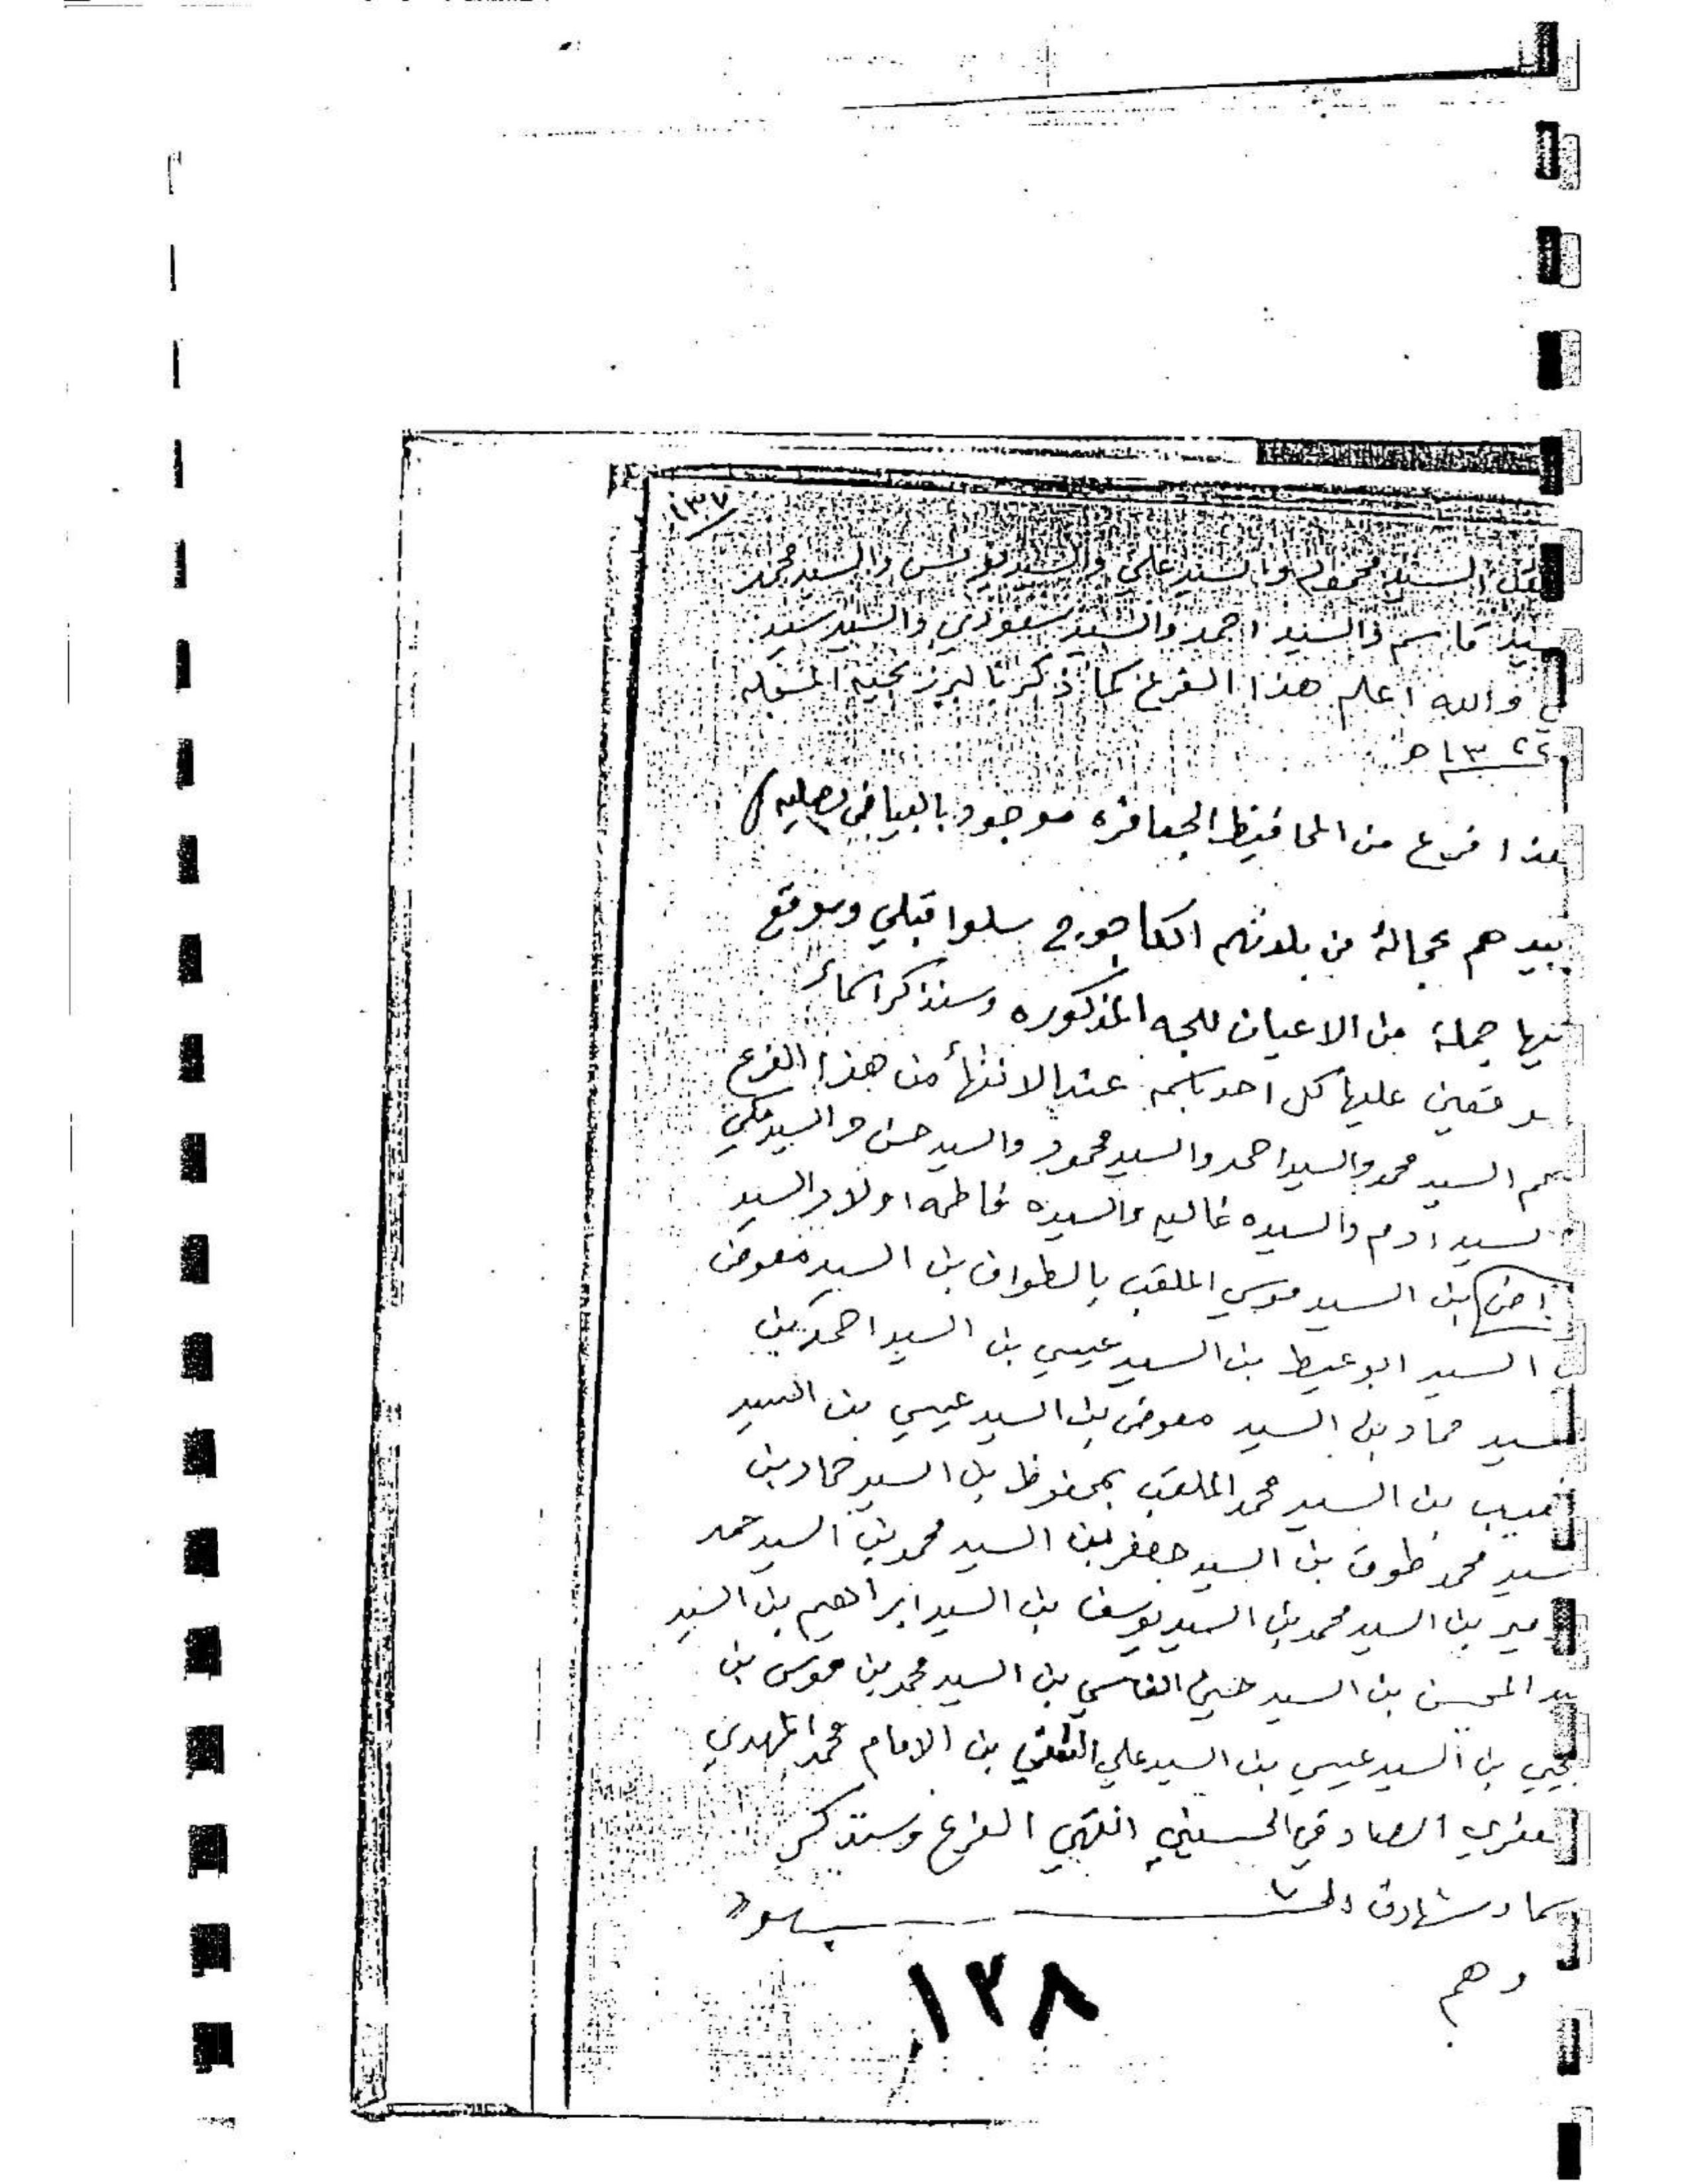 ١٣٧
السيد محمود والسيد علي والسيد يونس والسيد محمد
سيد قاسم والسيد احمد والسيد سعودي والسيد سيد
والله اعلم هذا الفرع كما ذكرنا
١٣٢٢ هـ
هذا فرع من المحافيظ الجعافره موجود بالبياضى
بيدهم عجالة من بلدتهم الكاجوج سلوا قبلي وموقع
فيها جملة من الاعيان للجه المذكوره وسنذكر اسمائ
عليها كل احد باسمه عند الانتهأ من هذا الفرع
السيد محمد والسيد احمد والسيد محمود والسيد حسن والسيد مكي
لسيد ادم والسيده غاليه والسيده فاطمه اولاد السيد
بن السيد موسي الملقب بالطواف بن السيد معوض
السيد ابو عيط بن السيد عيسي بن السيد احمد بن
سيد حماد بن السيد معوض بن السيد عيسي بن السيد
بن السيد محمد الملقب بمحفوظ بن السيد حماد بن
سيد محمد طوق بن السيد جعفر بن السيد محمد بن السيد حمد
مير بن السيد محمد بن السيد يوسف بن السيد ابراهيم بن السيد
بد المحسن بن السيد حسين الفاسي بن السيد محمد بن موسى بن
يحيي بن السيد عيسي بن السيد علي التقي بن الامام محمد المهدي
عفري الصادقي الحسيني انتهي الفرع وسنذكر
شهادة
وهم
١٣٨